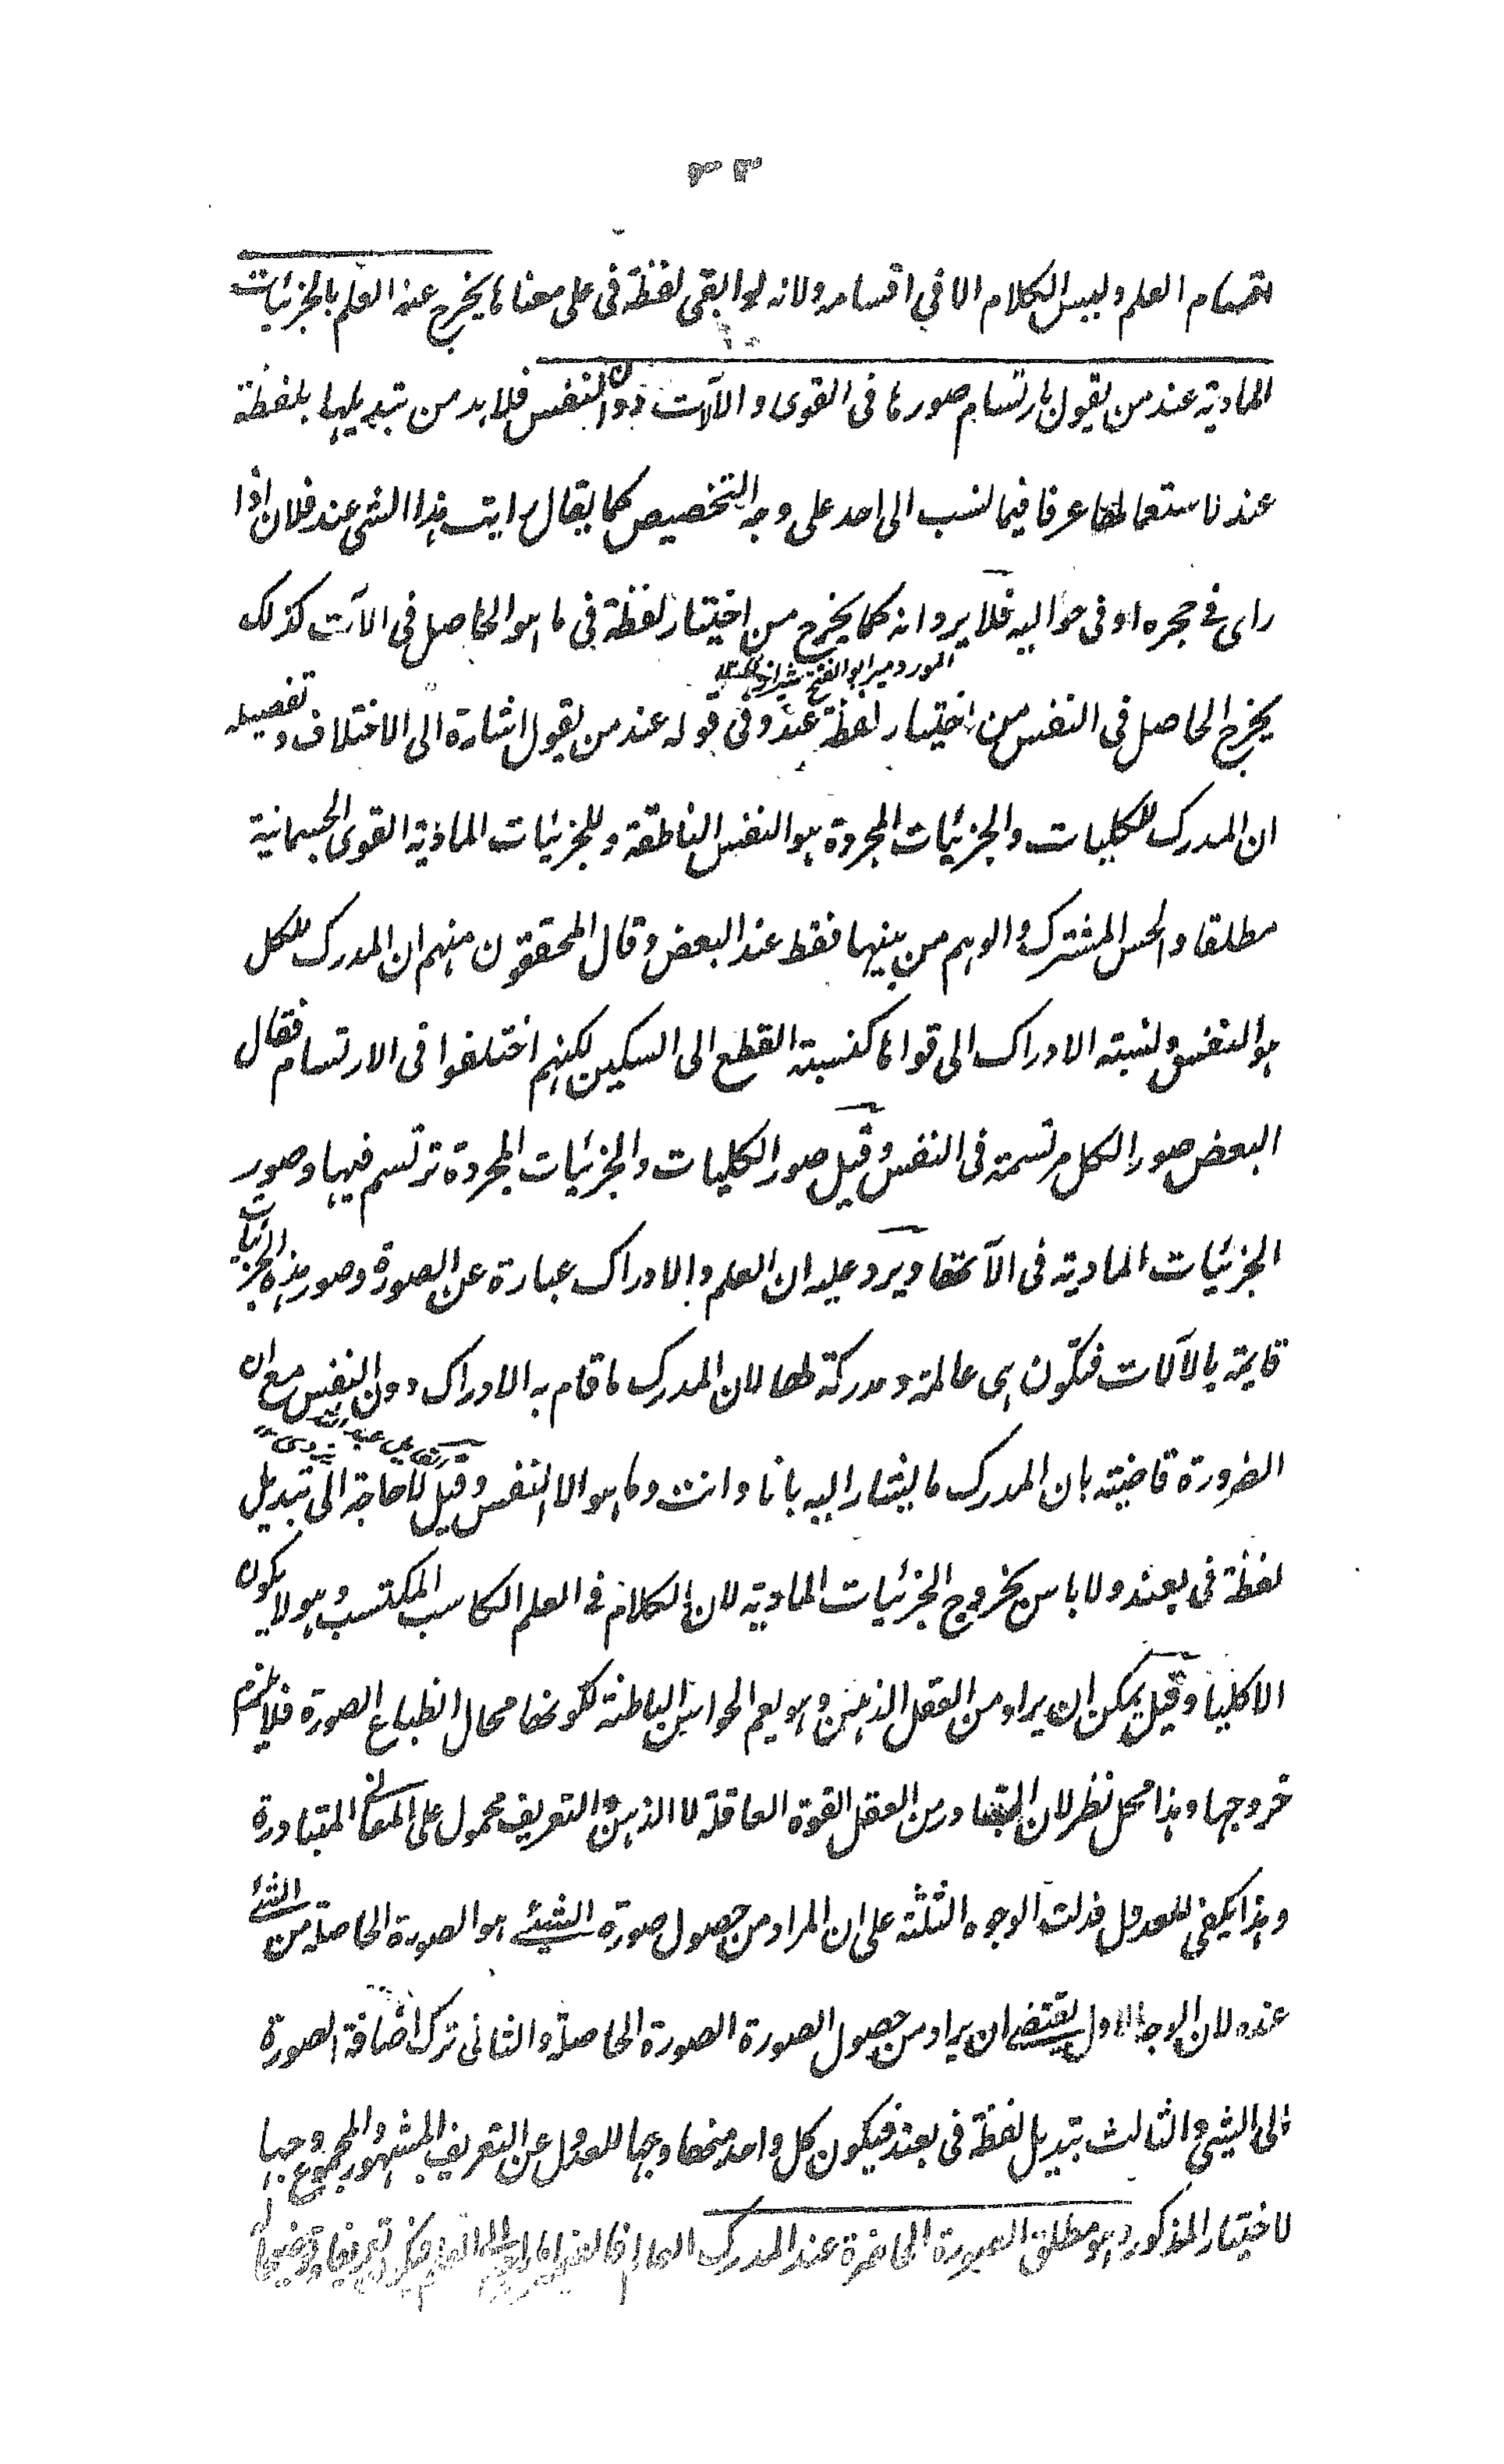 العلم وليس الكلام الا في اقسامه ولانه لو ابقى لفظة فى على معناها يخرج عنه العلم بالجزئيات
المادية عند من يقول بارتسام صورها فى القوى والآلات دون النفس فلا بد من تبديلها بلفظة
عند لاستعمالها عرفا فيما نسب الى احد على وجه التخصيص كما يقال رايت هذا الشى عند فلان اذا
راى فى حجره او فى حواليه فلا يرد انه كما يخرج من اختيار لفظة فى ما هو الحاصل فى الآت كذلك
المورد مير ابو الفتح
يخرج الحاصل فى النفس من اختيار لفظة عند وفى قوله عند من يقول اشارة الى الاختلاف وتفصيله
ان المدرك للكليات والجزئيات المجردة هو النفس الناطقة وللجزئيات المادية القوى الجسمانية
مطلقا والحس المشترك والوهم من بينها فقط عند البعض وقال المحققون منهم ان المدرك للكل
هو النفس ونسبته الادراك الى قواها كنسبة القطع الى السكين لكنهم اختلفوا فى الارتسام فقال
البعض صور الكل مرتسمة فى النفس وقيل صور الكليات والجزئيات المجردة ترتسم فيها وصور
الجزئيات المادية فى الآتها ويرد عليه ان العلم والادراك عبارة عن الصورة وصور هذه الجزئيات
قايمة بالآلات فتكون هى عالمة ومدركة لها لان المدرك ما قام به الادراك دون النفس مع ان
الضرورة قاضية بان المدرك ما يشار اليه بانا وانت وما هو الا النفس وقيل لا حاجة الى تبديل
لفظة فى بعند ولا باس بخروج الجزئيات المادية لان الكلام فى العلم الكاسب المكتسب وهو لا يكون
الا كليا وقيل يمكن ان يراد من العقل الذهن وهو يعم الحواس الباطنة لكونها محال انطباع الصورة فلا يلزم
خروجها وهذا محل نظر لان المتبادر من العقل القوة العاقلة لا الذهن والتعريف محمول على المعانى المتبادرة
وهذا يكفى للعدول فدلت الوجوه الثلثة على ان المراد من حصول صورة الشيئ هو الصورة الحاصلة من الشئ
عنده لان الوجه الاول يقتضى ان يراد من حصول الصورة الصورة الحاصلة والثانى ترك اضافة الصورة
الى الشيئ والثالث تبديل لفظة فى بعند فيكون كل واحد منها وجها للعدول عن التعريف المشهور والمجموع وجها
لاختيار المذكور وهو مطلق الصورة الحاضرة عند المدرك